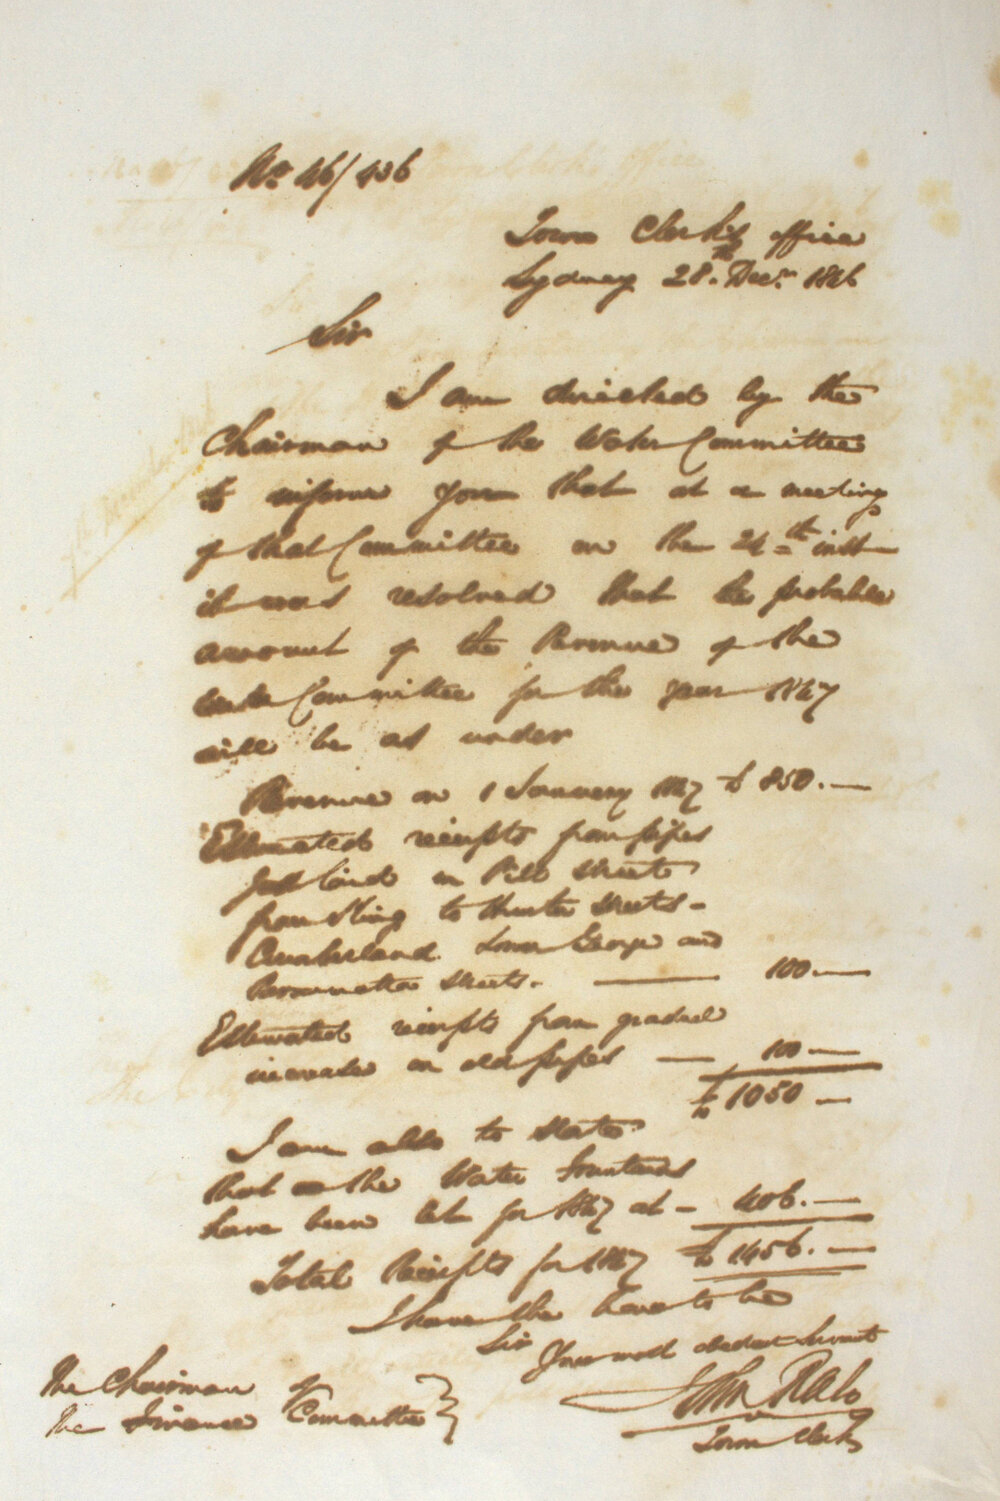 No 46/436
Town Clerk's Office
Sydney 28th Decr 1846
Sir
I am directed by the
Chairman of the Water Committee
to inform you that at a meeting
of that Committee on the 24th inst
it was resolved that the probable
amount of the Revenue of the
Water Committee for the year 1847
will be as under
Revenue on 1 January 1847 £ 850. —
Estimated receipts from pipes
just laid in Pitt Street
from King to Hunter Streets -
Cumberland. Lower George and
Streets. — 100 —
Estimated receipts from gradual
increase on old pipes — 100 —
£ 1050 —
I am also to state
that the Water Fountains
have been let for 1847 at - 406. —
Total Receipts for 1847 £ 1456. —
I have the honor to be
Sir
Your most obedient Servant
John Rae
Town Clerk
The Chairman of
the Finance Committee